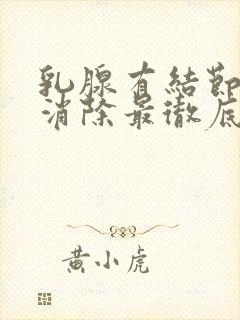 乳腺有結節
消除最徹底
黄小虎